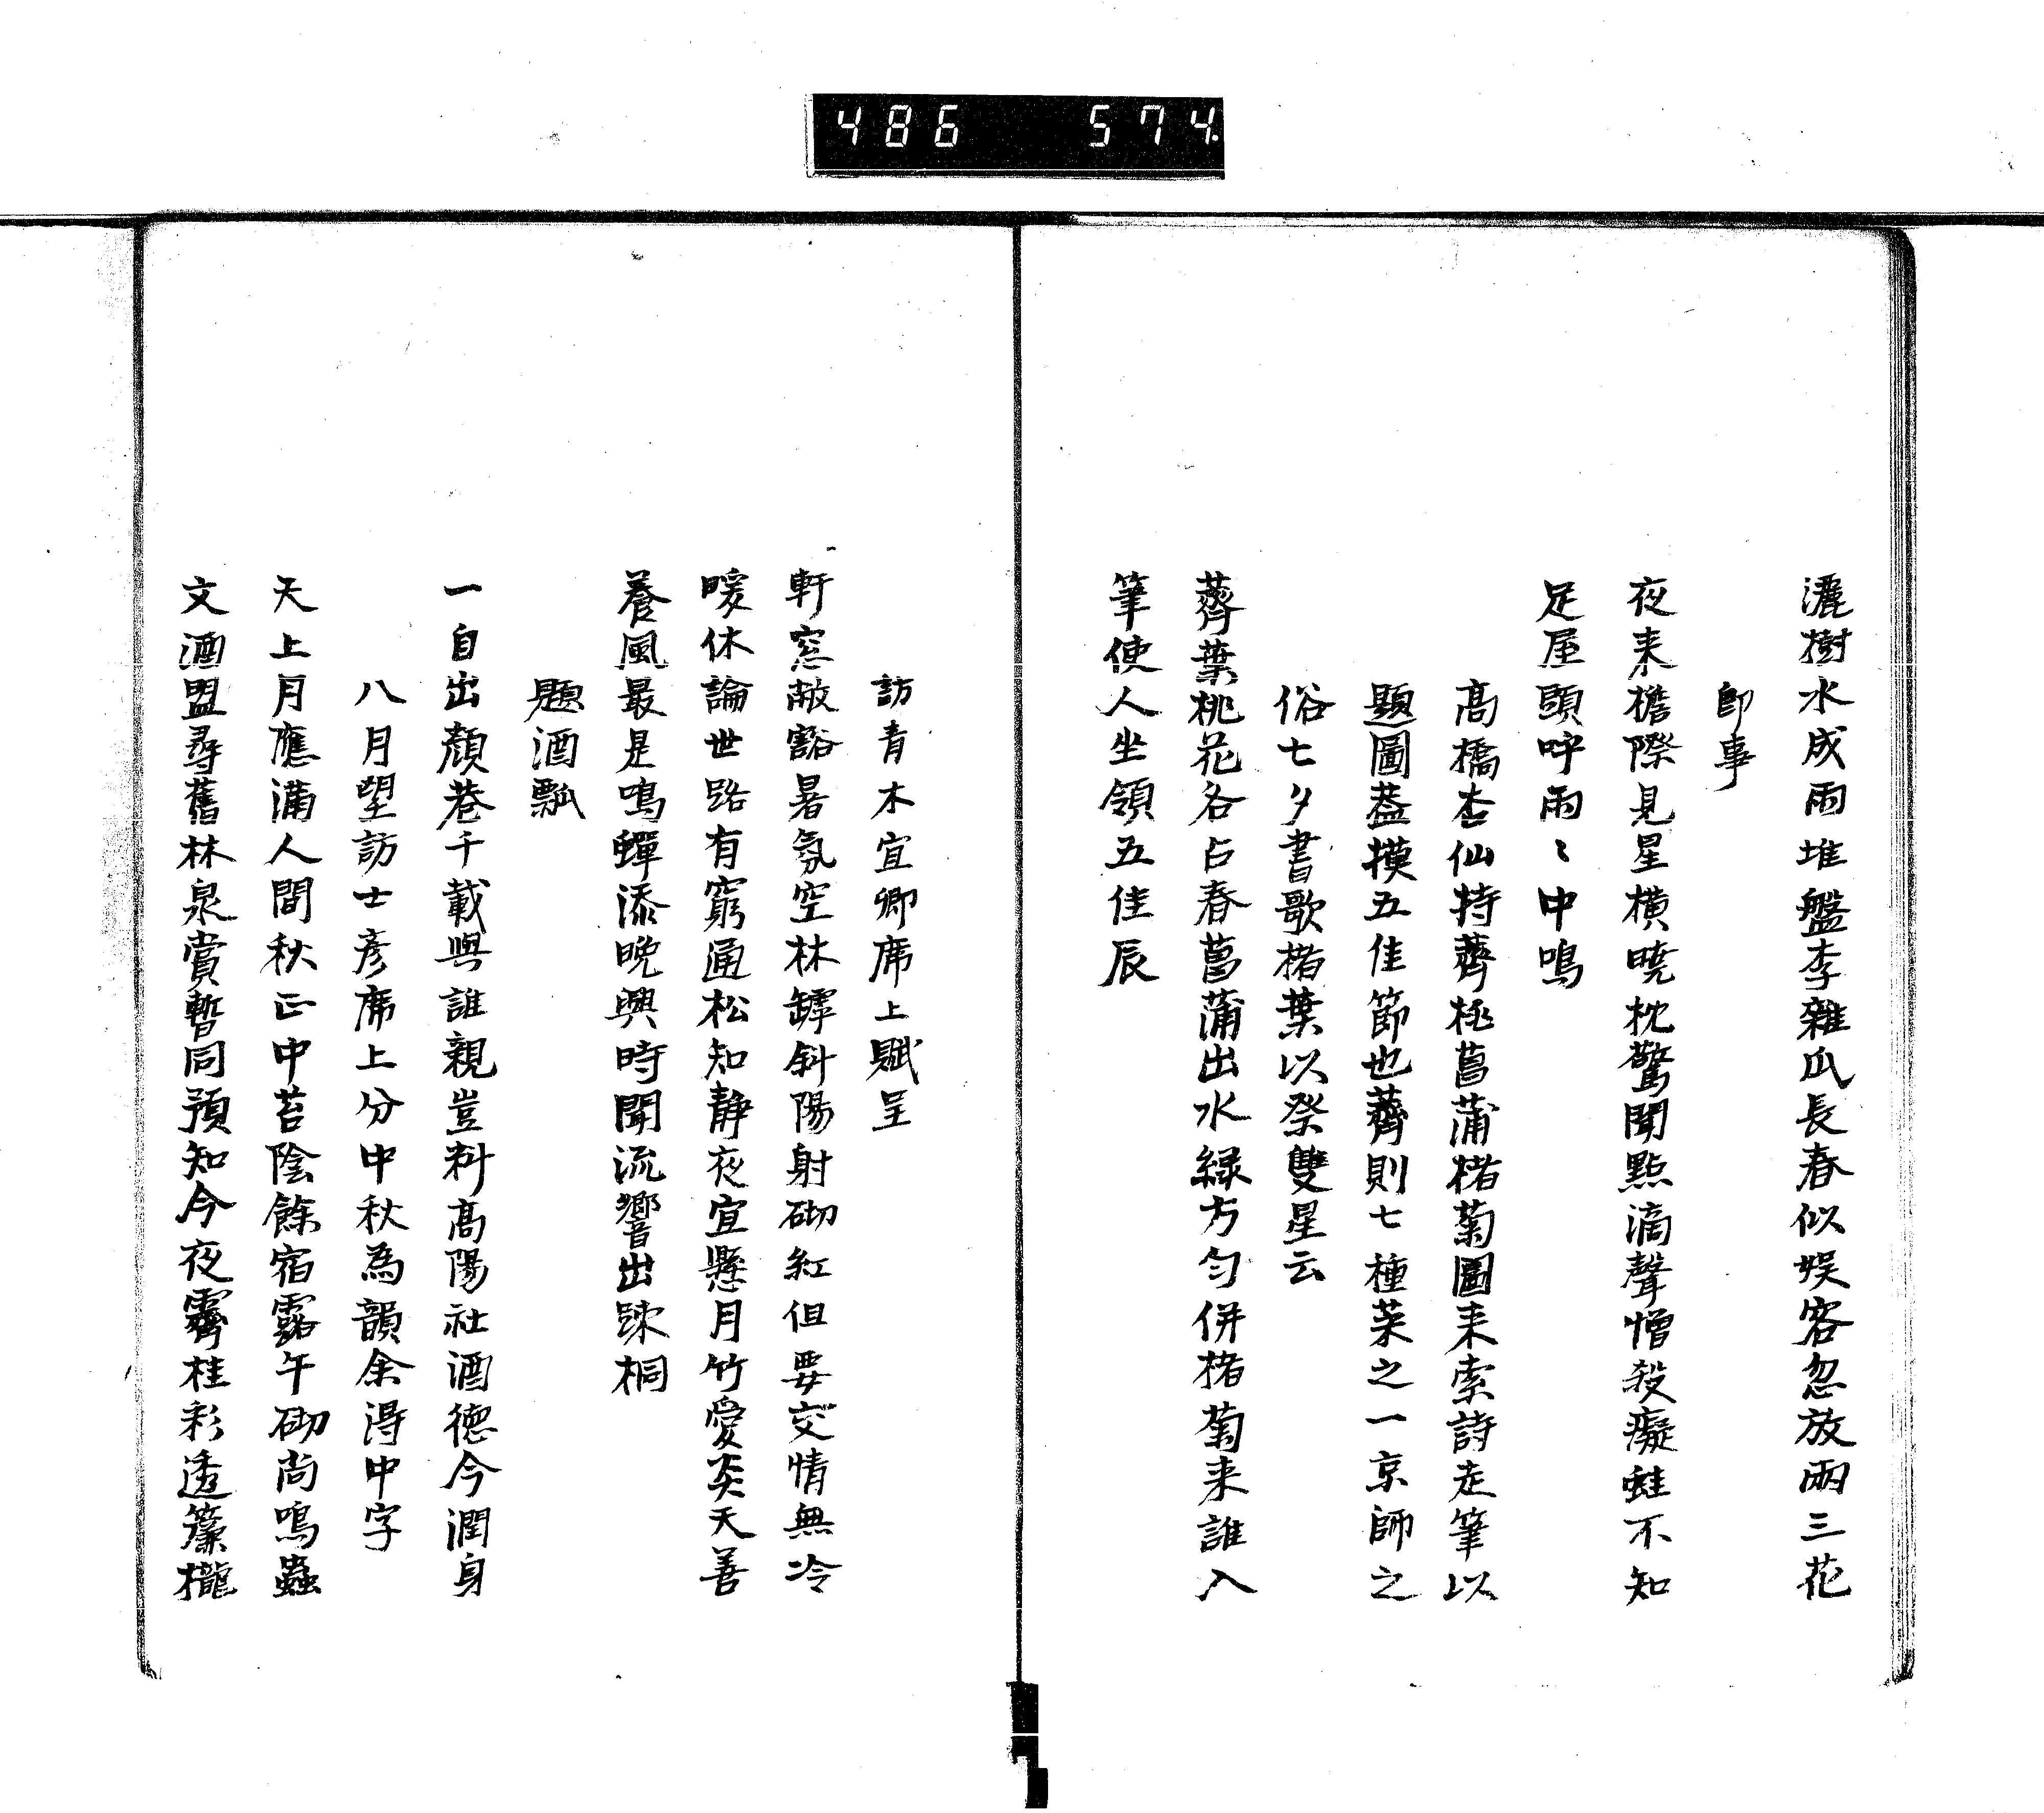 486 574
灑樹水成雨堆盤李雜瓜長春似娯客忽放兩三花
即事
夜来檐際見星横暁枕驚聞點滴聲憎殺癡蛙不知
足屋頭呼雨〻中鳴
髙橋杏仙持薺桃菖蒲楮菊圖来索詩走筆以
題圖葢摸五佳節也薺則七種菜之一京師之
俗七夕書歌楮葉以祭雙星云
薺葉桃花各占春菖蒲出水緑方匀併楮菊来誰入
筆使人坐領五佳辰
訪青木宜卿席上賦呈
軒窓敞豁暑氛空林罅斜陽射砌紅但要交情無冷
暖休論世路有窮通松知靜夜宜懸月竹愛炎天善
養風最是鳴蟬添晩興時聞流響出踈桐
題酒瓢
一自出顏巷千載與誰親豈料髙陽社酒徳今潤身
八月望訪士彥席上分中秋為韻余得中字
天上月應滿人間秋正中苔陰餘宿露午砌尚鳴蟲
文酒盟尋舊林泉賞暫同預知今夜霽桂彩透簾櫳